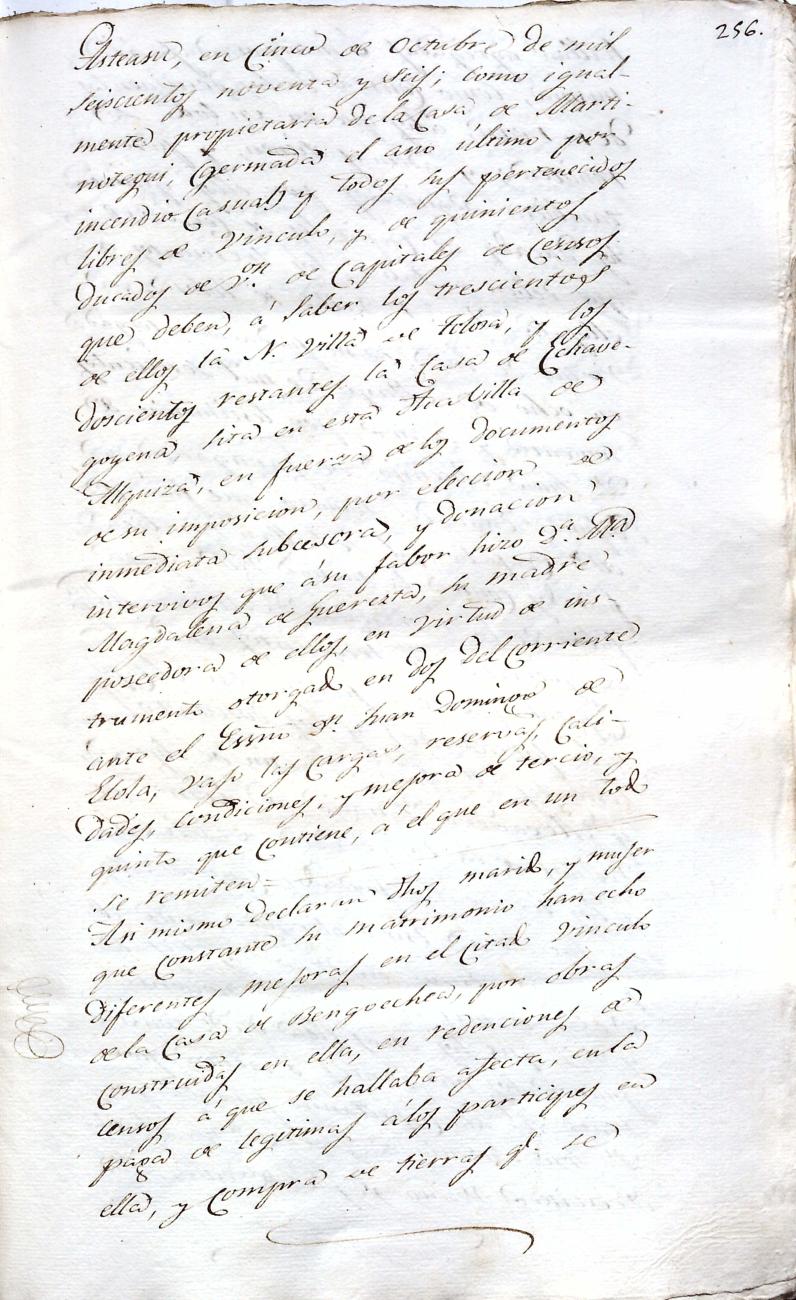 256.
Asteasu, en Cinco de Octubre de mil
seiscientos noventa y seis; como igual-
mente propietaria de la Casa, de Marti-
notegui, (quemada el ano ultimo por
incendio Casual) y todos sus pertenecidos
libres de Vinculo, y de quinientos
ducados de Von. de Capitales de Censos
que deben, á saber los trescientos
de ellos la N. Villa de tolosa, y los
doscientos restantes la Casa de Echave-
goyena sita en esta dha Villa de
Alquiza, en fuerza de los documentos
de su imposicion, por eleccion de
inmediata subcesora, y donacion
intervivos que ásu fabor hizo Da. Ma
Magdalena de Guerezta, su madre
poseedora de ellos, en virtud de ins-
trumento otorgado en dos del Corriente
ante el Essno Dn. Juan Domingo de
Elola, vajo las Cargas, reservas, Cali-
dades, Condiciones, y mejora de tercio, y
quinto que Contiene, á el que en un todo
se remiten =
Asi mismo declaran dhos marido, y mujer
que Constante su matrimonio han echo
diferentes mejoras en el Citado Vinculo
de la Casa de Bengoechea, por obras
Construidas en ella, en redenciones de
Censos á que se hallaba afecta, en la
paga de legitimas álos participes en
ella, y Compra de tierras qe. se